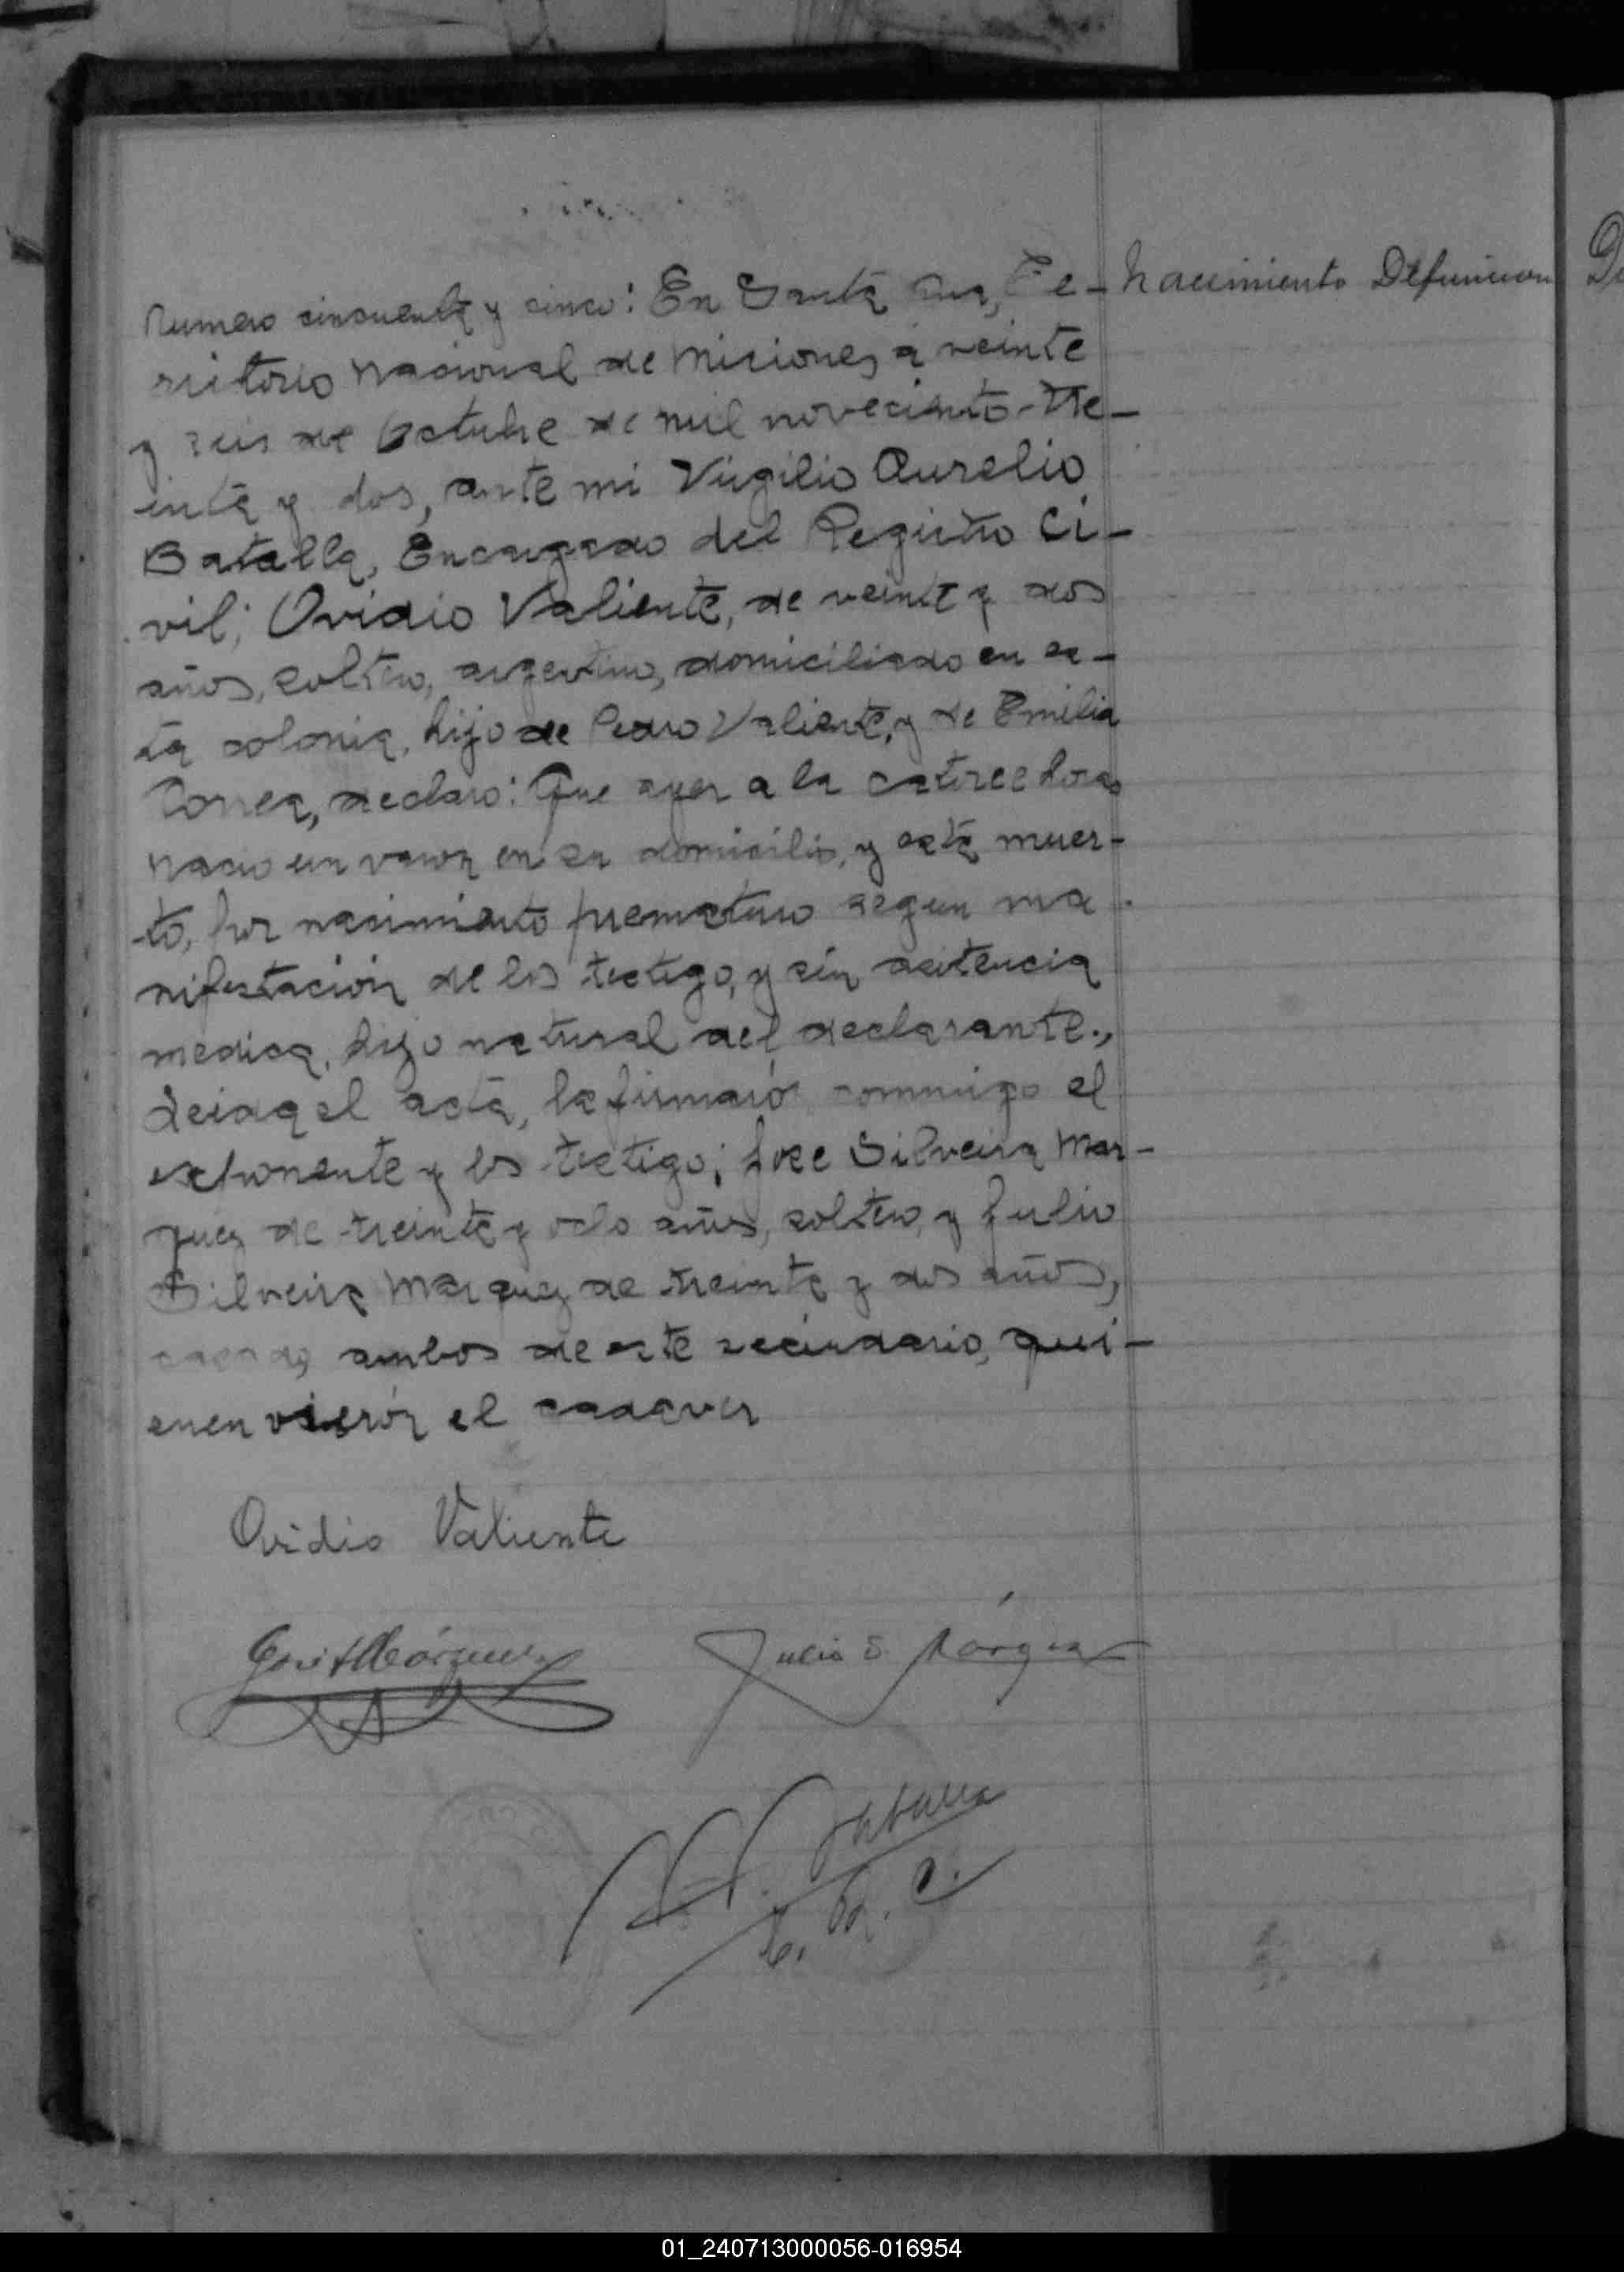 Numero cincuenta y cinco: En Santa Ana, Te-
rritorio Nacional de Misiones, a veinte
y seis de Octubre de mil novecinto-tre-
inta y dos, ante mi Virgilio Aurelio
Batalla, Encargado del Registro Ci-
vil; Ovidio Valiente, de veinte y dos
años, soltero, argentino, domiciliado en es-
ta colonia, hijo de Pedro Valiente, y de Emilia
Correa, declaro: Que ayer a la catorce horas
nacio un varon en su domicilio, y está muer-
-to, por nacimiento prematuro segun ma-
nifestación de los testigo, y sin asitencia
medica, hijo natural del declarante.,
Leida el acta, la firmaró conmigo el
exponente y los testigo; Jose Silveira Mar-
quez de treinta y ocho años, soltero, y Julio
Silveira Marquez de treinta y dos años,
casado, ambos de este vecindario, qui-
enen vierón el cadaver
Nacimiento Defuncion
Ovidio Valiente
Julio S. Márquez
Batalla
E. R. C.
01_240713000056-016954